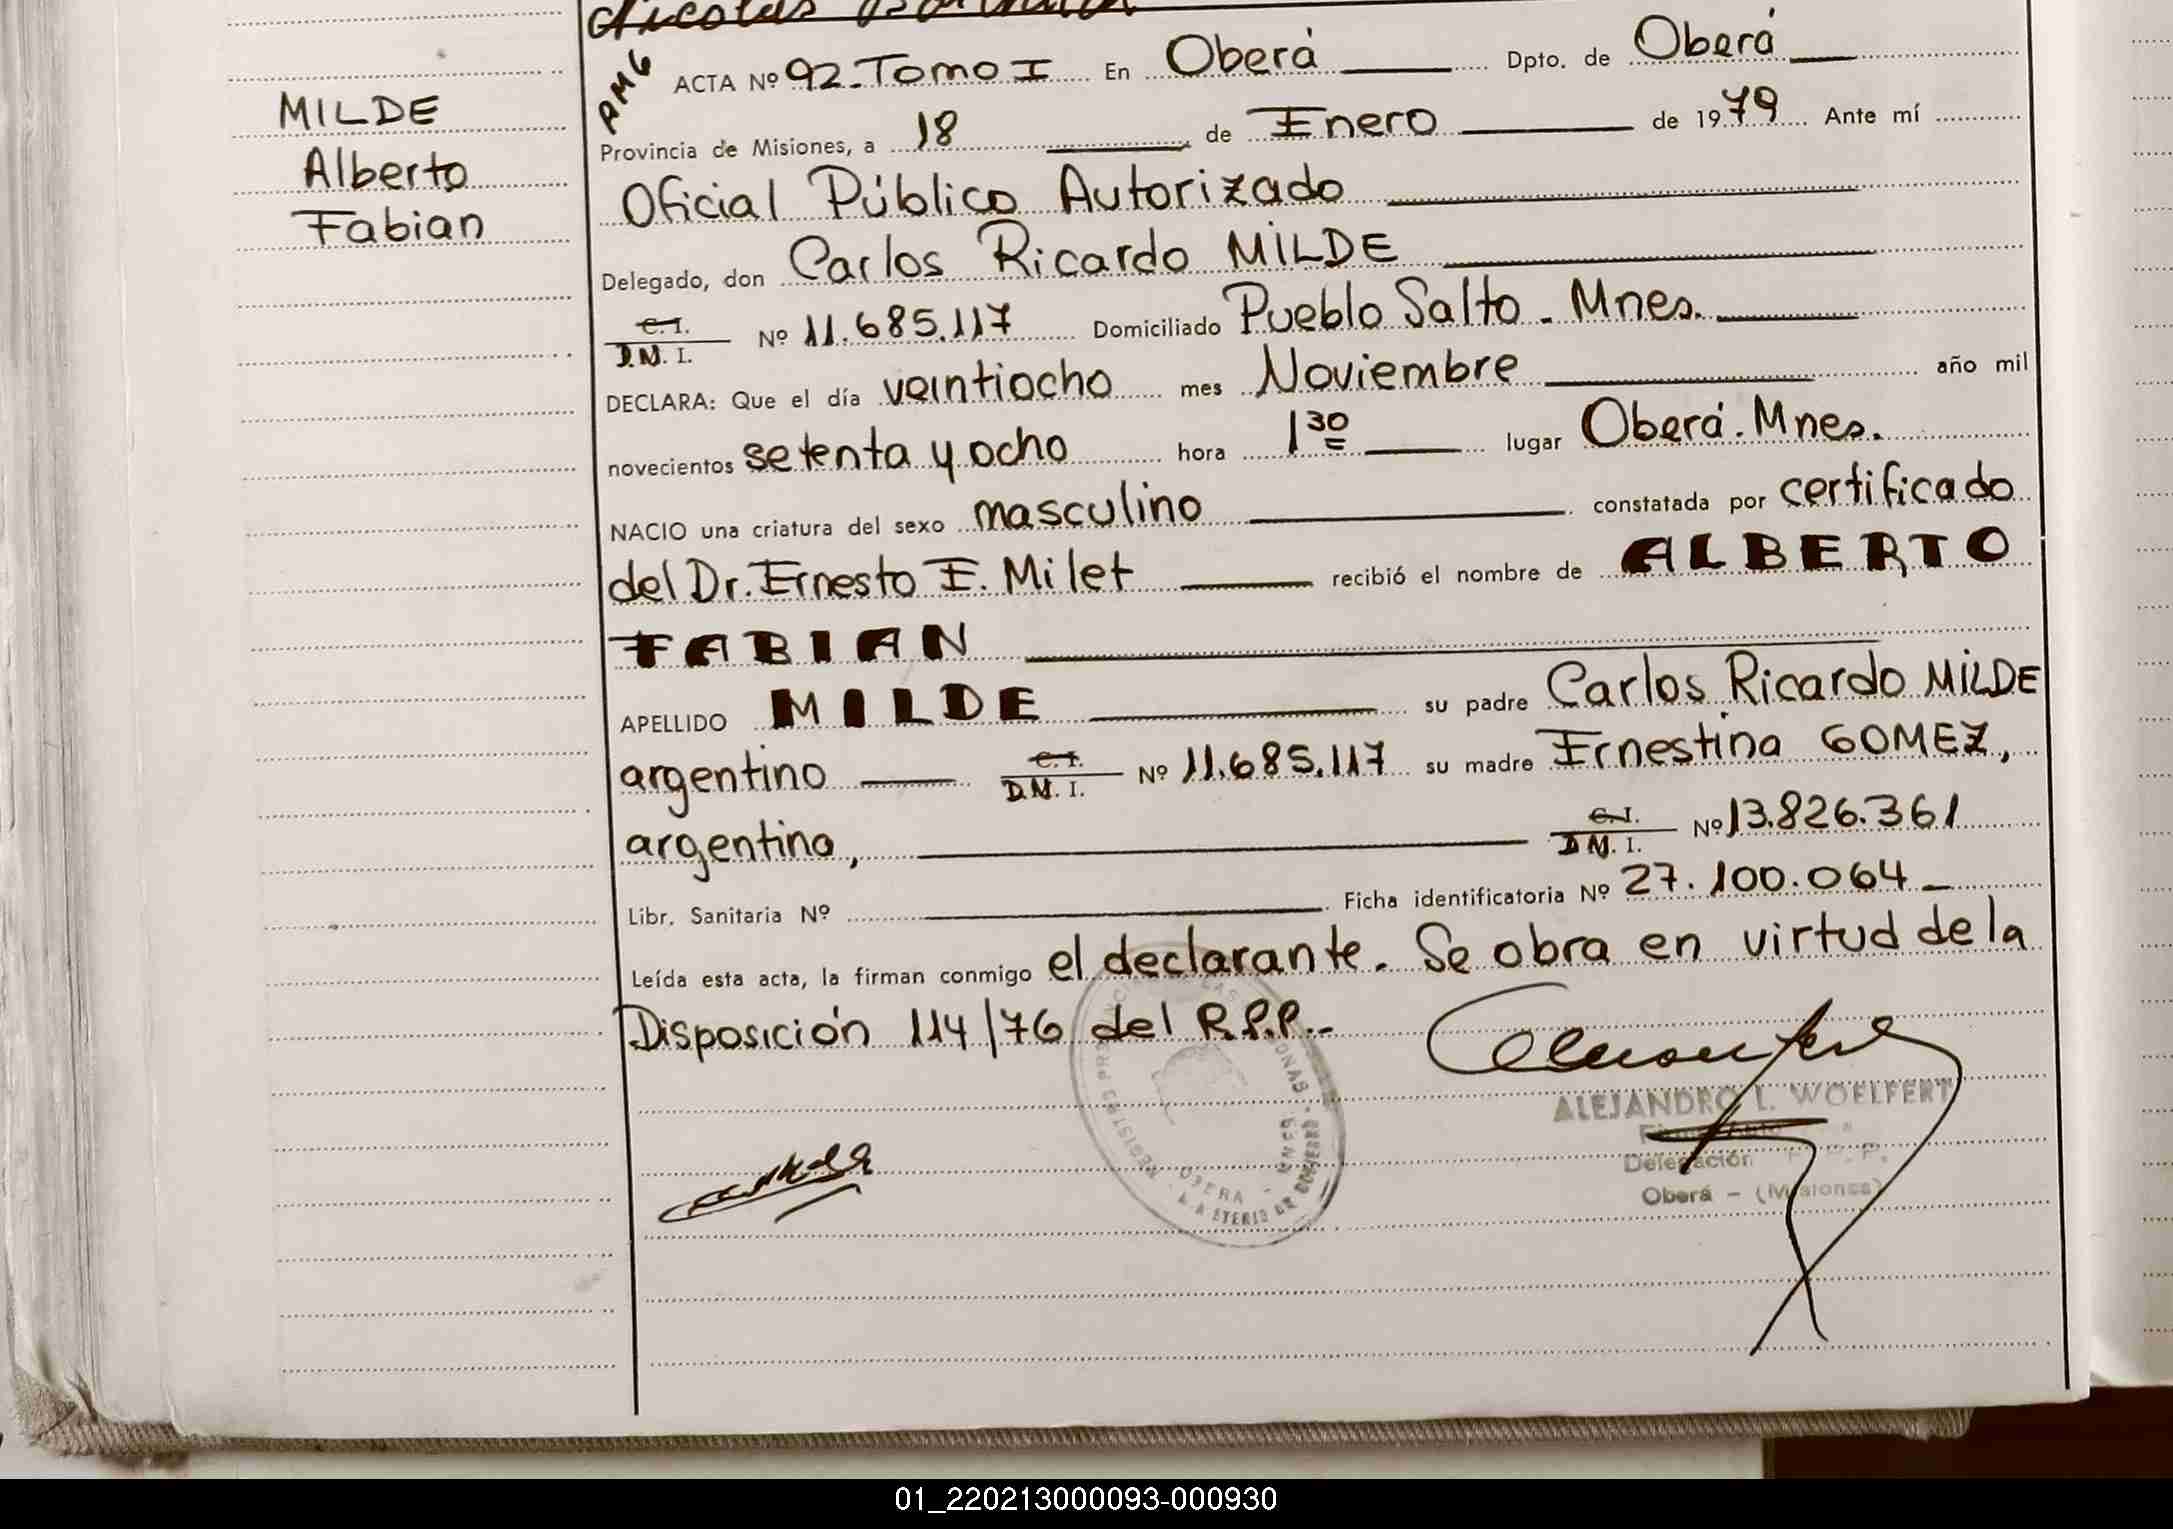 Nicolas
PMG
ACTA Nº 92-Tomo I En Oberá Dpto. de Oberá
MILDE
Alberto
Fabian
Provincia de Misiones, a 18 de Enero de 1979 Ante mí
Oficial Público Autorizado
Delegado, don Carlos Ricardo MILDE
C.I. D.N.I. Nº 11.685.117 Domiciliado Pueblo Salto - Mnes.
DECLARA: Que el día veintiocho mes Noviembre año mil
novecientos setenta y ocho hora 1 30 lugar Oberá. Mnes.
NACIO una criatura del sexo masculino constatada por certificado
del Dr. Ernesto E. Milet recibió el nombre de ALBERTO
FABIAN
APELLIDO MILDE su padre Carlos Ricardo MILDE
argentino C.I. D.N.I. Nº 11.685.117 su madre Ernestina GOMEZ,
argentina, C.I. D.N.I. Nº 13.826.361
Libr. Sanitaria Nº Ficha identificatoria Nº 27.100.064 -
Leída esta acta, la firman conmigo el declarante. Se obra en virtud de la
Disposición 114/76 del R.P.P.-
ALEJANDRO L. WOELFERT
Delegación
Oberá - (Misiones)
OBERA - MNES.
01_220213000093-000930